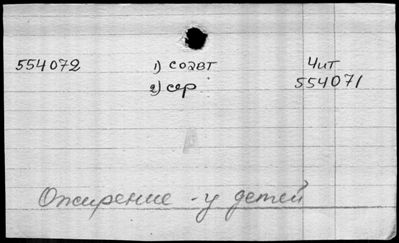 554072 1) соавт Чит
2) сер 554071
Ожирение - у детей